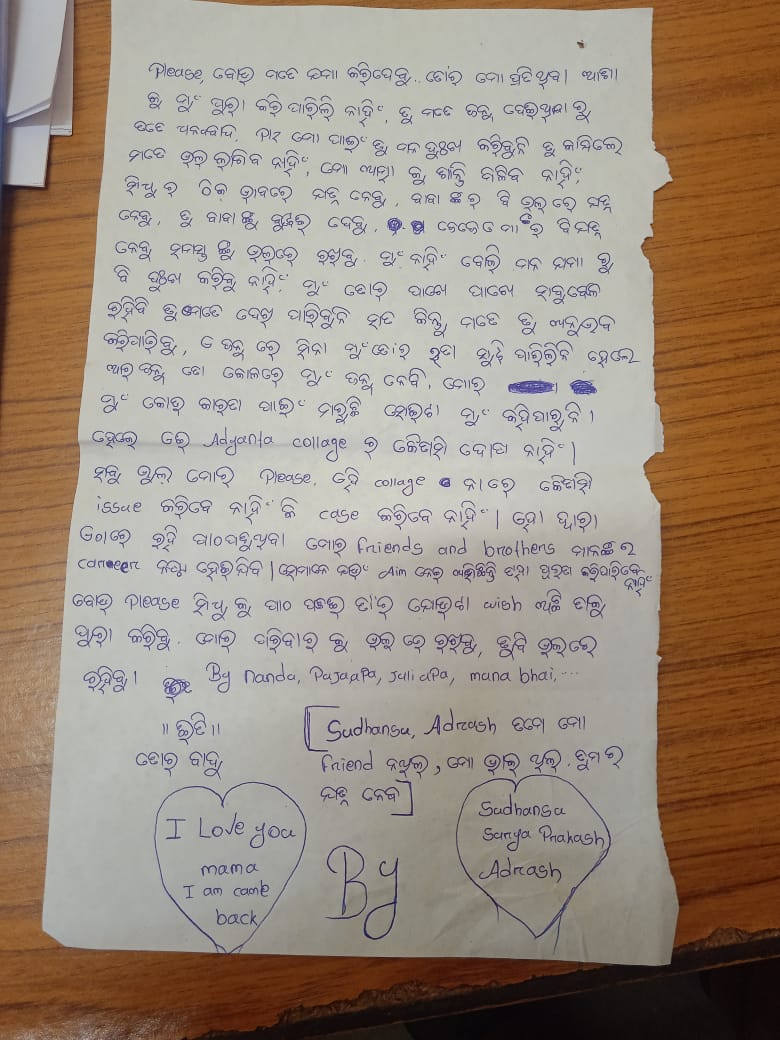 Please, ବୋଉ ମତେ କ୍ଷମା କରିଦେବୁ.. ତୋର ମୋ ପ୍ରତି ଥିବା ଆଶା
କୁ ମୁଁ ପୁରା କରି ପାରିଲି ନାହିଁ, ତୁ ମତେ ଜନ୍ମ ଦେଇଥିବା ରୁ
ତତେ ଧନ୍ୟବାଦ. Plz ମୋ ପାଇଁ ତୁ ମନ ଦୁଃଖ କରିବୁନି ତୁ କାନ୍ଦିଲେ
ମତେ ଭଲ ଲାଗିବ ନାହିଁ, ମୋ ଆତ୍ମା କୁ ଶାନ୍ତି ମିଳିବ ନାହିଁ,
ସିଥୁ ର ଠିକ୍ ଭାବରେ ଯତ୍ନ ନେବୁ, ବାବା ଙ୍କ ର ବି ଭଲ ରେ ଯତ୍ନ
ନେବୁ, ତୁ ବାବା ଙ୍କୁ ବୁଝାଇ ଦେବୁ, ଜେଜେ ମା ଙ୍କ ର ବି ଯତ୍ନ
ନେବୁ ସମସ୍ତ ଙ୍କୁ ଭଲରେ ରଖିବୁ. ମୁଁ ନାହିଁ ବୋଲି ମନ
ବି ଦୁଃଖ କରିବୁ ନାହିଁ, ମୁଁ ତୋର ପାଖେ ପାଖେ ସବୁବେଳେ
ରହିବି ତୁ ମତେ ଦେଖି ପାରିବୁନି ସତ କିନ୍ତୁ ମତେ ତୁ ଅନୁଭବ
କରିପାରିବୁ, ଏ ଜନ୍ମ ରେ ସିନା ମୁଁ ତୋର ପାରିଲିନି ହେଲେ
ଆର ଜନ୍ମ ତୋ କୋଳରେ ମୁଁ ଜନ୍ମ ନେବି, ମୋର
ମୁଁ କୋଉ କାରଣ ପାଇଁ ମରୁଛି ସେଇଟା ମୁଁ କହିପାରୁନି।
ହେଲେ ରେ Adyanta collage ର କୌଣସି ଦୋଷ ନାହିଁ।
ସବୁ ଭୁଲ ମୋର Please, ସେହି collage ନା ରେ କୌଣସି
issue କରିବେ ନାହିଁ କି case କରିବେ ନାହିଁ। ସେ ଦ୍ୱାରା
ରେ ରହି ପାଠପଢୁଥିବା ମୋର friends and brothers ମାନଙ୍କ ର
career ନଷ୍ଟ ହେଇଯିବ। ସେମାନେ ଯେଉଁ Aim ନେଇ ଆସିଛନ୍ତି ତାହା ପୁରଣ କରିପାରିବେ ନାହିଁ
ବୋଉ Please ସିଥୁ କୁ ପାଠ ପଢାଇ ତା'ର ଯୋଉଟା wish ଅଛି ତାକୁ
ପୁରା କରିବୁ. ମୋର ପରିବାର କୁ ଭଲ ରେ ରଖିବୁ, ତୁ ବି ଭଲରେ
ରହିବୁ। By nanda, Pujaapa, juliapa, mana bhai,...
॥ ଇତି ॥
ତୋର ବାବୁ
[Sudhansu, Adrash ତମେ ମୋ
friend ନଥିଲ, ମୋ ଭାଇ ଥିଲ. ତୁମ ର
ଯତ୍ନ ନେବ]
I Love you
mama
I am came
back
By
Sudhansu
Surya Prakash
Adrash